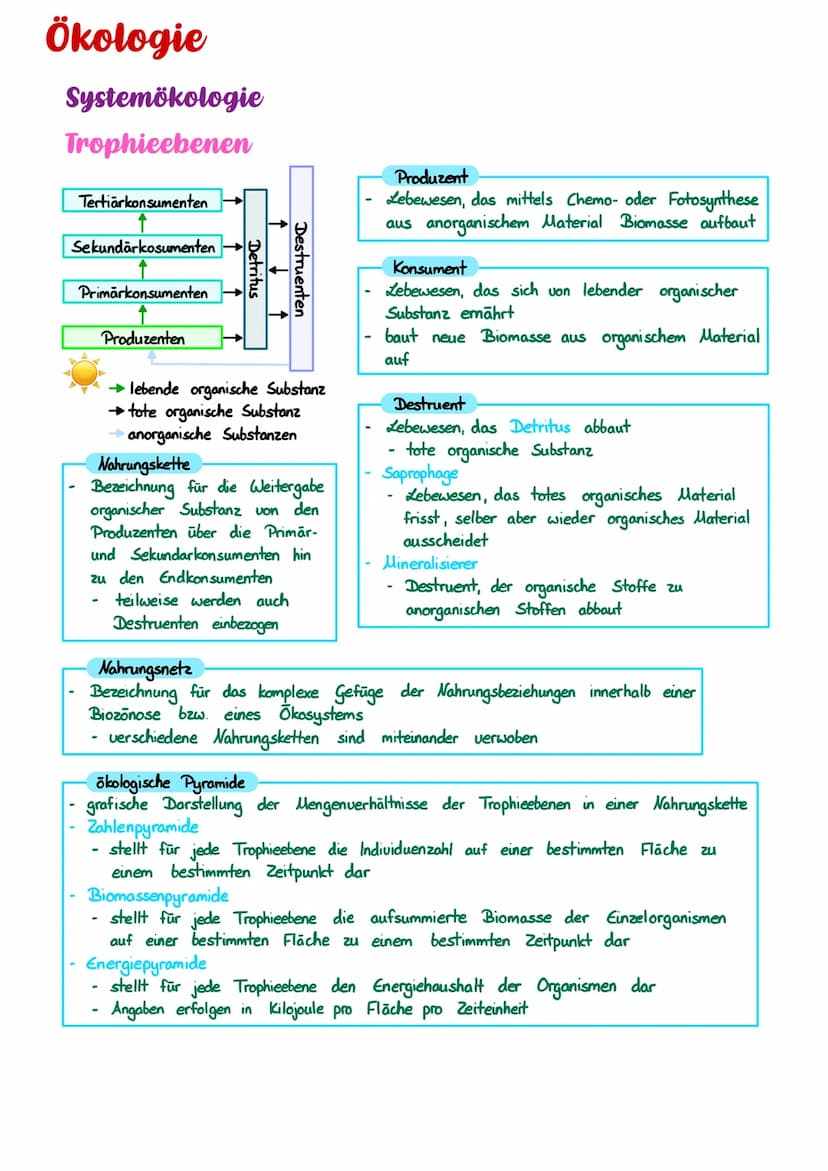 Ökologie
Systemökologie
Trophieebenen
Tertiärkonsumenten
Sekundärkosumenten
Primärkonsumenten
Produzenten
Detritus
Destruenten
lebende organische Substanz
tote organische Substanz
anorganische Substanzen
Nahrungskette
- Bezeichnung für die Weitergabe
organischer Substanz von den
Produzenten über die Primär-
und Sekundarkonsumenten hin
zu den Endkonsumenten
- teilweise werden auch
Destruenten einbezogen
Produzent
- Lebewesen, das mittels Chemo- oder Fotosynthese
aus anorganischem Material Biomasse aufbaut
Konsument
- Lebewesen, das sich von lebender organischer
Substanz ernährt
- baut neue Biomasse aus organischem Material
auf
Destruent
- Lebewesen, das Detritus abbaut
- tote organische Substanz
- Saprophage
- Lebewesen, das totes organisches Material
frisst, selber aber wieder organisches Material
ausscheidet
- Mineralisierer
- Destruent, der organische Stoffe zu
anorganischen Stoffen abbaut
Nahrungsnetz
- Bezeichnung für das komplexe Gefüge der Nahrungsbeziehungen innerhalb einer
Biozönose bzw. eines Ökosystems
- verschiedene Nahrungsketten sind miteinander verwoben
ökologische Pyramide
- grafische Darstellung der Mengenverhältnisse der Trophieebenen in einer Nahrungskette
- Zahlenpyramide
- stellt für jede Trophieebene die Individuenzahl auf einer bestimmten Fläche zu
einem bestimmten Zeitpunkt dar
- Biomassenpyramide
- stellt für jede Trophieebene die aufsummierte Biomasse der Einzelorganismen
auf einer bestimmten Fläche zu einem bestimmten Zeitpunkt dar
- Energiepyramide
- stellt für jede Trophieebene den Energiehaushalt der Organismen dar
- Angaben erfolgen in Kilojoule pro Fläche pro Zeiteinheit